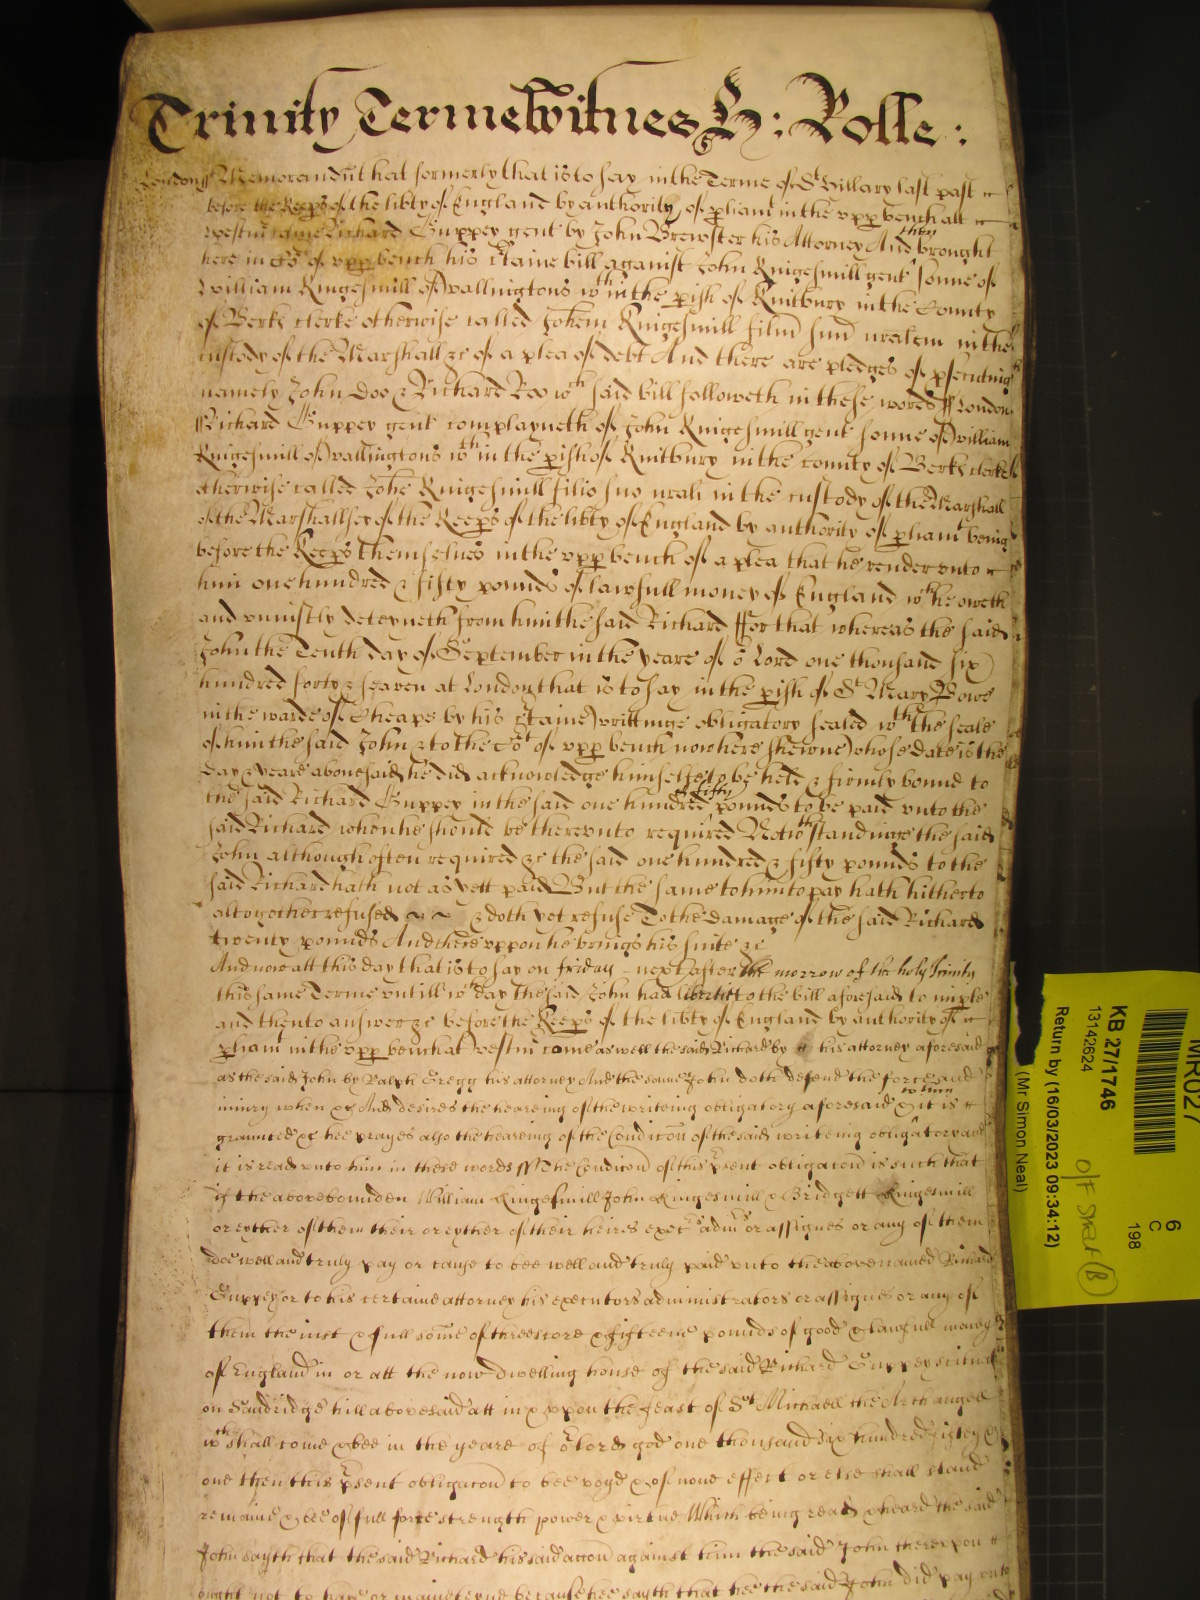 Trinity Terme Witnes H: Rolle:
London ss Memorandũ that formerly that is to say in the Terme of St Hillary last past
before the Keeps of the libty of England by authority of pliamt in the vpp bench att
Westm came Richard Guppey gent by John Brewster his Attorney And brought
here in Cot of vpp bench his ctaine bill against John Kingesmill gent then sonne of
William Kingesmill of Wallingtons wth in the pish of Kintbury in the County
of Berks clerke otherwise called Johem Kingesmill filiu suu nralem in the
custody of the Marshall &c of a plea of debt And there are pledges of psecuting
namely John Doo & Richard Roo wch said bill followeth in these words ss London
ss Richard Guppey gent complayneth of John Kingesmill gent sonne of William
Kingesmill of Wallingtons wth in the pish of Kintbury in the county of Berks clerke
otherwise called Johe Kingesmill filio suo nrali in the custody of the Marshall
of the Marshallsey of the Keeps of the libty of England by authority of pliamt being
before the Keeps themselues in the vpp bench of a plea that he render vnto
him one hundred & fifty pounds of lawfull money of England wch he oweth
and vniustly deteyneth from him the said Richard ffor that whereas the said
John the Tenth day of September in the yeare of or Lord one thousand six
hundred forty & seaven at London that is to say in the pish of St Mary Bowe
in the warde of Cheape by his ctaine writtinge obligatory sealed wth the seale
of him the said John & to the Cot of vpp bench now here shewne whose date is the
day & yeare abouesaid he did acknowledge himselfe to be held & firmly bound to
the said Richard Guppey in the said one hundred & fifty pounds to be paid vnto the
said Richard when he should be therevnto required Notwthstandinge the said
John although often required &c the said one hundred & fifty pounds to the
said Richard hath not as yett paid But the same to him to pay hath hitherto
altogother refused & doth yet refuse To the damage of the said Richard
twenty pounds And there vppon he brings his suite &c
And now att this day that is to say on friday next after the morrow of the holy Trinity
this same Terme vntill wch day the said John had libertie to the bill aforesaid to imple
and then to answer &c before the Keeps of the libty of England by authority of
pliamt in the vpp bench at Westm come as well the said Richard by his attorney aforesaid
as the said John by Ralph Gregg his attorney And the same John doth defend the force and
iniury when &c And desires the heareing of the writeing obligatory aforesaid & it is to him
graunted &c hee prayes also the heareing of the Condicon of the said writeing obligatory and
it is read vnto him in these words ss The Condicon of this psent obligacon is such that
if the aboue bounden William Kingesmill John Kingesmill & Bridgett Kingesmill
or eyther of them their or eyther of their heires exectrs admrs or assignes or any of them
doe well and truly pay or cause to bee well and truly paid vnto the aboue named Richard
Guppey or to his certaine attorney his executors administrators or assignes or any of
them the iust & full some of threescore & fifteene pounds of good & lawfull money
of England in or att the now dwelling house of the said Richard Guppey scituat
on Saudridge hill abouesaid att in & vppon the feast of St Michaell the Archangell
wch shall come & bee in the yeare of or lord god one thousand six hundred fifty &
one then this psent obligacon to bee voyd & of none effect or else shall stand
remaine & bee of full force strength power & virtue Which being read & heard the said
John sayth that the said Richard his said accon against him the said John therevppon
ought not to have or mainteyne because hee sayth that hee the said John did pay vnto
MR027
KB 27/1746
13142624
Return by (16/03/2023 09:34:12)
(Mr Simon Neal)
6
C
198
O/F Shelf B